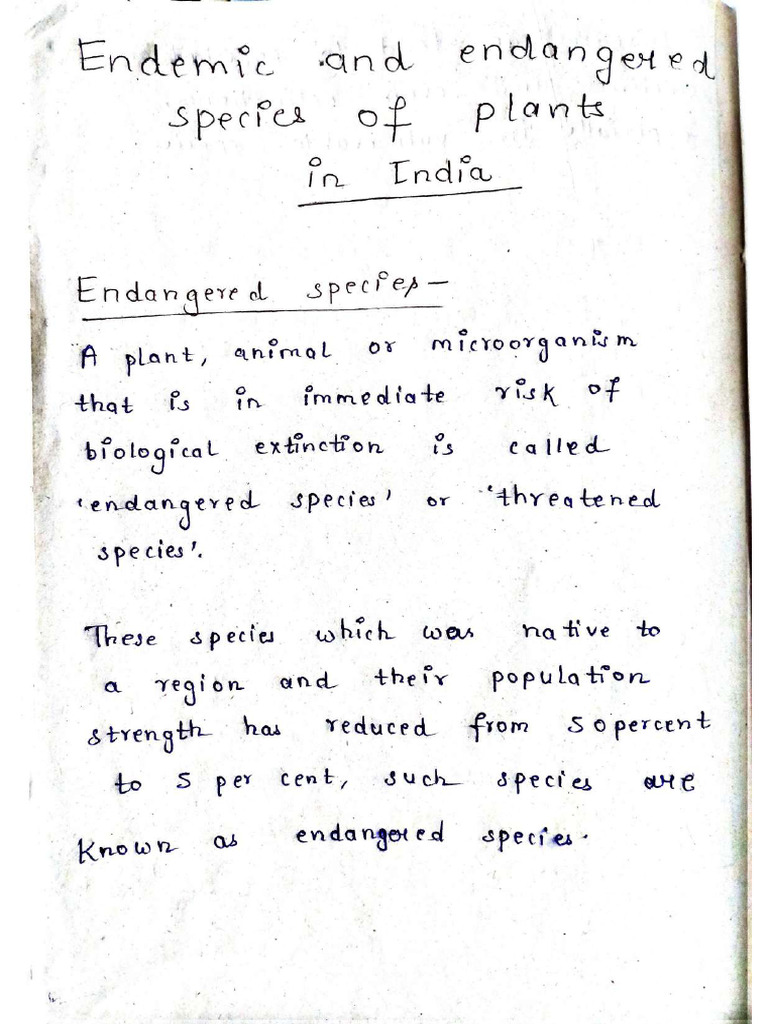 Endemic and endangered
species of plants
in India
Endangered species-
A plant, animal or microorganism
that is in immediate risk of
biological extinction is called
'endangered species' or 'threatened
species'.
These species which was native to
a region and their population
strength has reduced from 50percent
to 5 per cent, such species are
Known as endangered species.